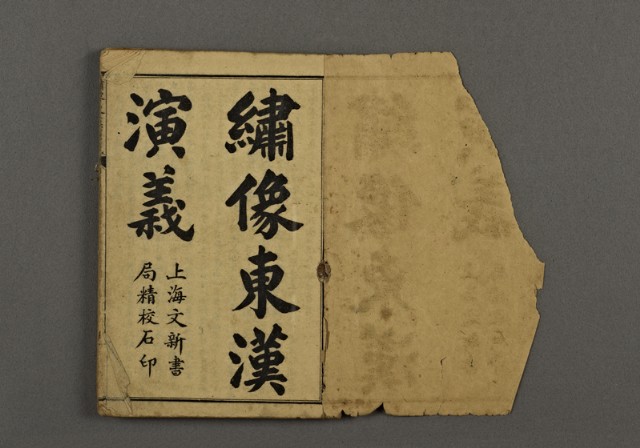 繡像東漢
演義
上海文新書
局精校石印